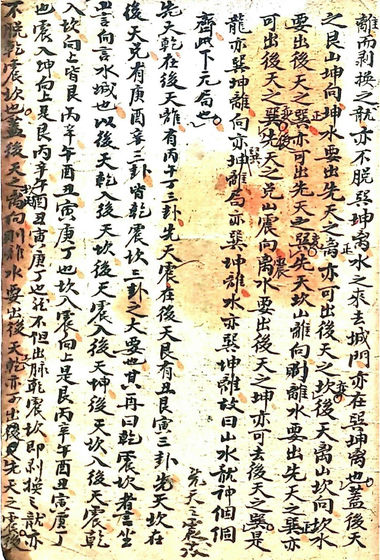 離而剥換之龍亦不脱巽坤離水之來去城門亦在巽坤离也蓋後天
之艮山坤向坤水要出先天之离亦可出後天之坎後天离山坎向坎水
要出後天之巽亦可出先天之巽先天坎山離向剥離水要出先天之巽亦
可出後天之巽先天之兑山震向离水要出後天之坤亦可去後天之巽是
龍亦巽坤離向亦坤離局亦巽坤離水亦巽坤離故曰山水龍神個個
齊此下元局也
先天乾在後天離有丙午丁三卦先天震在後天艮有丑艮寅三卦先天坎在
後天兑有庚酉辛三卦皆乾震坎三卦之大要也其再曰乾震坎者言坐
丑言向言水城也以後天乾入後天坎後天震入後天坤後天坎入後天震乾
入坎向上皆艮丙辛午酉丑寅庚丁也坎入震向上是艮丙辛午酉丑寅庚丁
也震入坤向上是艮丙辛午酉丑寅庚丁也然不但出脉乾震坎即剥換之龍亦
不脱乾震坎也蓋後天离向剥離水要出後天乾亦可出後天先天之震後
先天之震後